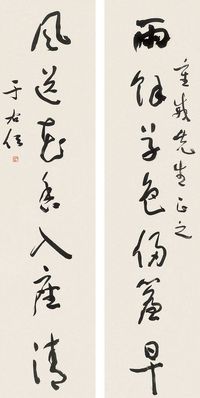 重先生正之
雨餘草色侵簾早
風送花香入座清
于右任